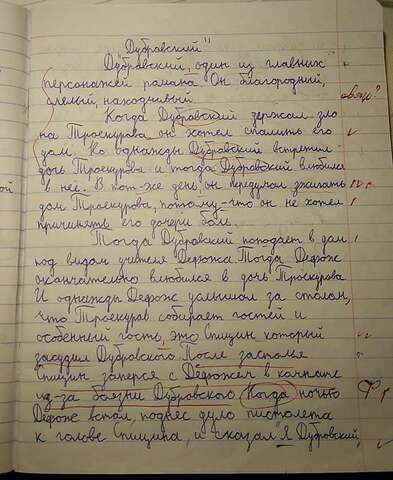 Дубровский"
Дубровский, один из главных
персонажей романа. Он благородный,
смелый, находчивый.
связь?
Когда Дубровский держал зло
на Троекурова он хотел спалить его
дом. Но однажды Дубровский встретил
дочь Троекурова и тогда Дубровский влюбился
в неё. В тот-же день, он передумал сжигать
дом Троекурова, потому-что он не хотел
причинять его дочери боль.
Тогда Дубровский поподает в дом
под видом учителя Дефожа. Тогда Дефорж
окончательно влюбился в дочь Троекурова
И однажды Дефорж услышал за столом,
что Троекуров собирает гостей и
особенный гость, это Спицин который
засудил Дубровского. После застолья
Спицин заперся с Дефоржем в комнате
из-за боязни Дубровского. Когда ночью
Ф
Дефорж встал, поднёс дуло пистолета
к голове Спицина, и сказал "Я Дубровский,